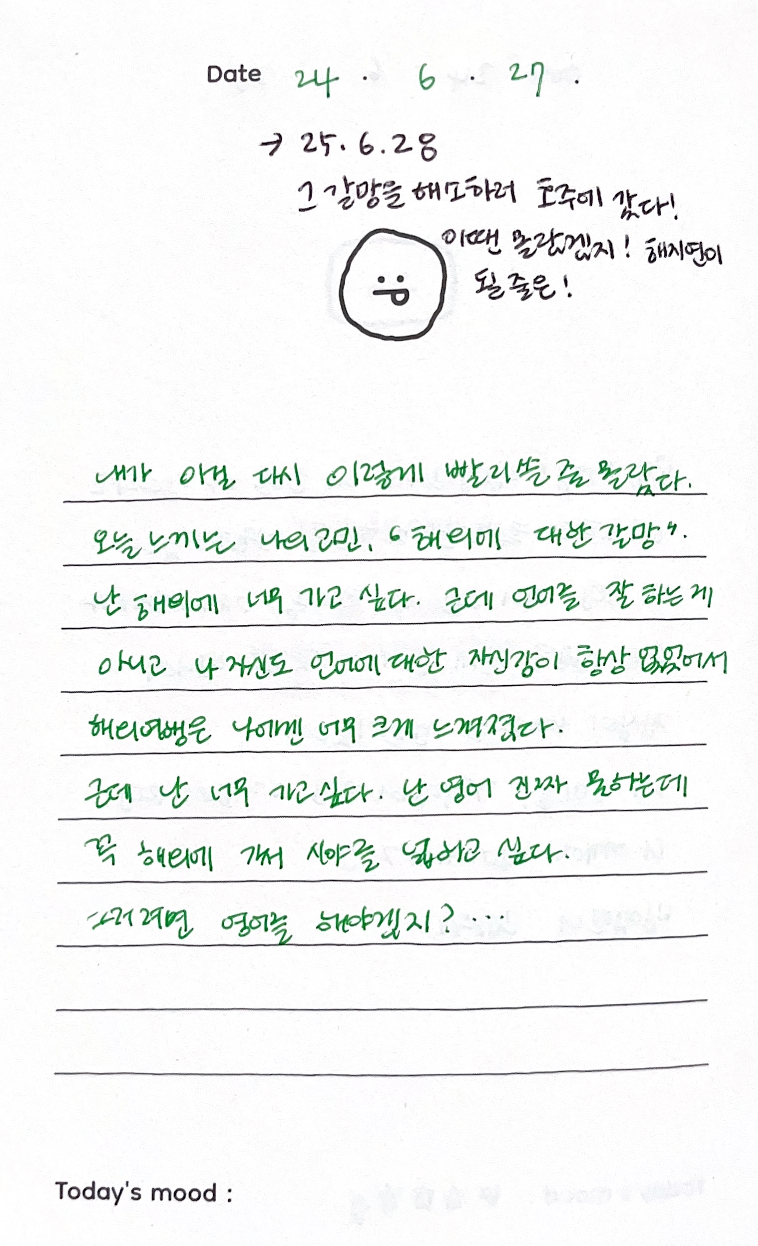 Date 24 . 6 . 27 .
→ 25.6.28
그 갈망을 해소하러 호주에 갔다!
이땐 몰랐겠지! 해지연이
될 줄은!
내가 아닐 다시 이렇게 빨리 쓸 줄 몰랐다.
오늘 느끼는 나의 고민, "해외에 대한 갈망".
난 해외에 너무 가고 싶다. 근데 언어를 잘 하는게
아니고 나 자신도 언어에 대한 자신감이 항상 없었어서
해외여행은 나에겐 너무 크게 느껴졌다.
근데 난 너무 가고싶다. 난 영어 진짜 못하는데
꼭 해외에 가서 시야를 넓하고 싶다.
그러려면 영어를 해야겠지? ...
Today's mood :